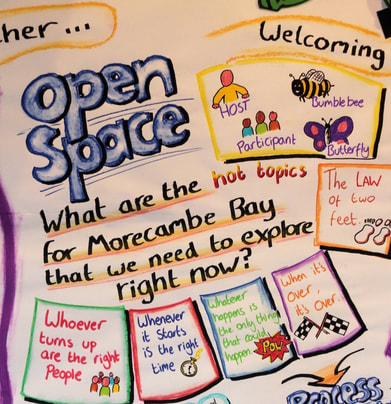 her ...
Welcoming
open
Space
HOST
Bumblebee
Participant
Butterfly
What are the hot topics
for Morecambe Bay
that we need to explore
right now?
The LAW
of two
feet...
Whoever
turns up
are the right
People
Whenever
it Starts
is the right
time
Whatever
happens is
the only thing
that could
happen
POW!
When it's
over,
it's Over..
PROCESS